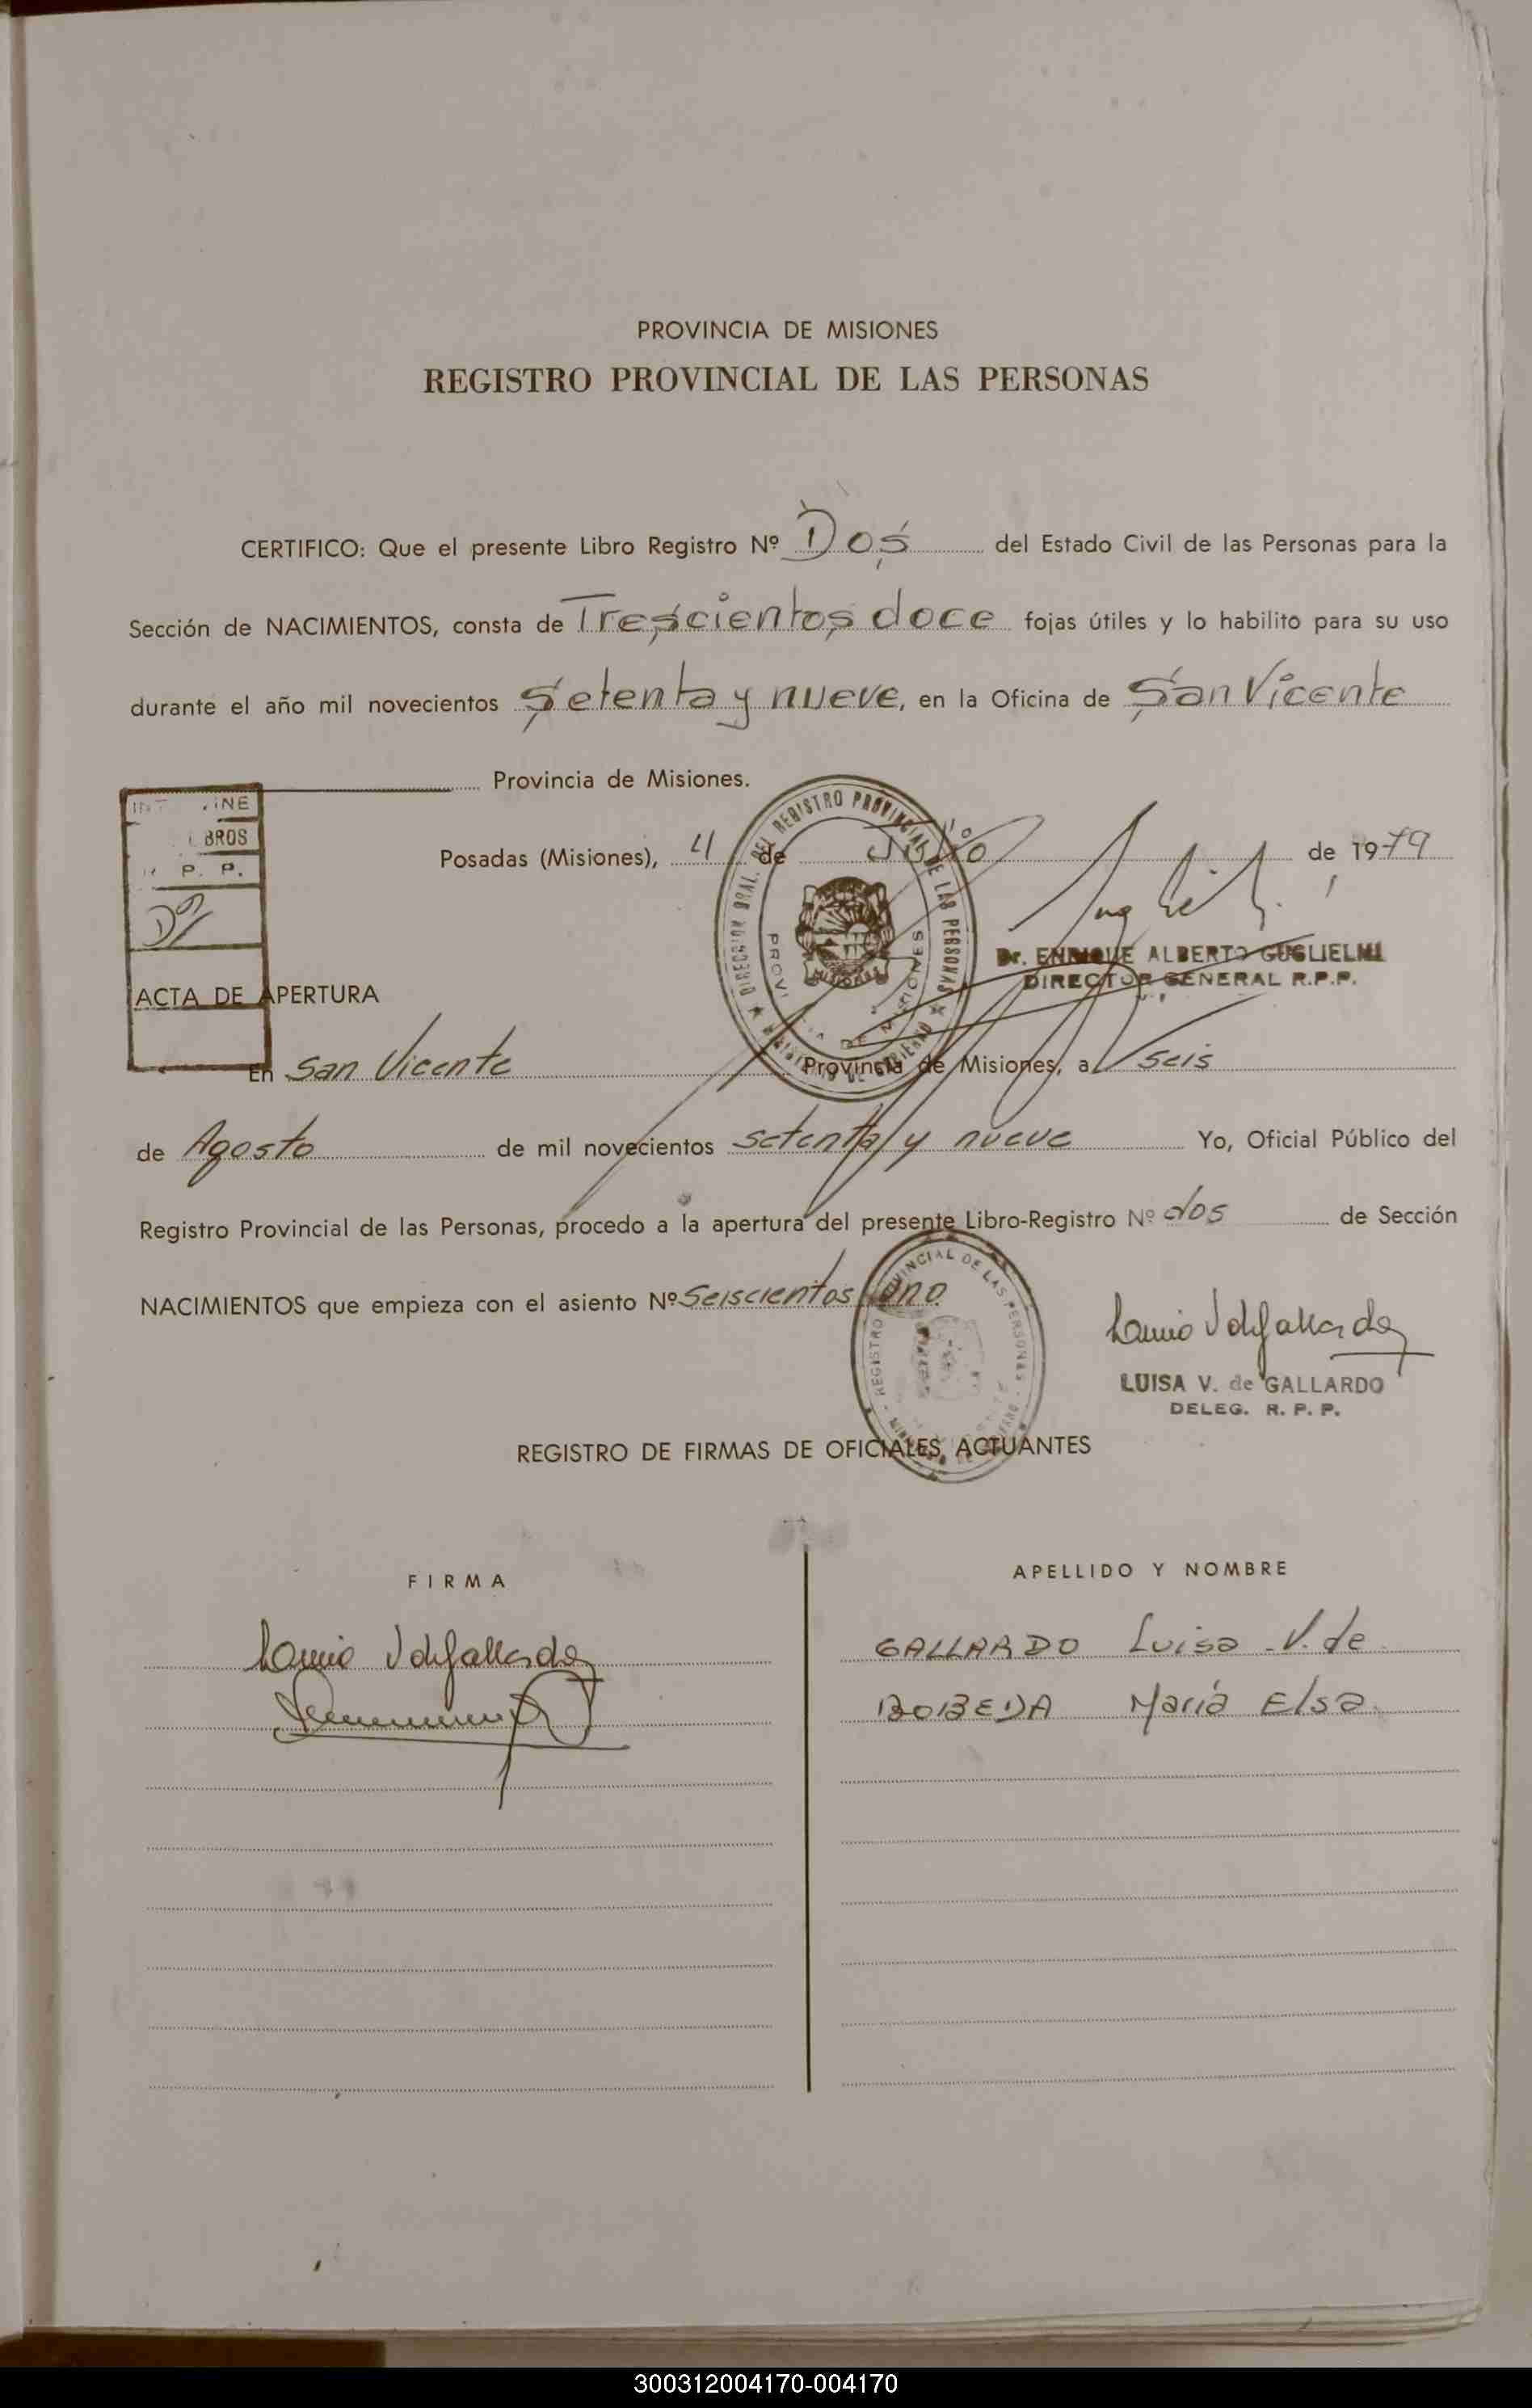 PROVINCIA DE MISIONES
REGISTRO PROVINCIAL DE LAS PERSONAS
CERTIFICO: Que el presente Libro Registro Nº Dos del Estado Civil de las Personas para la
Sección de NACIMIENTOS, consta de Trescientos doce fojas útiles y lo habilito para su uso
durante el año mil novecientos Setenta y nueve, en la Oficina de San Vicente
Provincia de Misiones.
BROS
P. P.
Posadas (Misiones), 4 de Julio de 1979
DIRECCION GRAL. DEL REGISTRO PROVINCIAL DE LAS PERSONAS
MISIONES
Dr. ENRIQUE ALBERTO GUGLIELMI
DIRECTOR GENERAL R.P.P.
ACTA DE APERTURA
En San Vicente Provincia de Misiones, a seis
de Agosto de mil novecientos setenta y nueve Yo, Oficial Público del
Registro Provincial de las Personas, procedo a la apertura del presente Libro-Registro Nº dos de Sección
NACIMIENTOS que empieza con el asiento Nº Seiscientos uno
REGISTRO PROVINCIAL DE LAS PERSONAS
LUISA V. de GALLARDO
DELEG. R. P. P.
REGISTRO DE FIRMAS DE OFICIALES ACTUANTES
FIRMA
APELLIDO Y NOMBRE
GALLARDO Luisa V. de
BOBEDA María Elsa
300312004170-004170